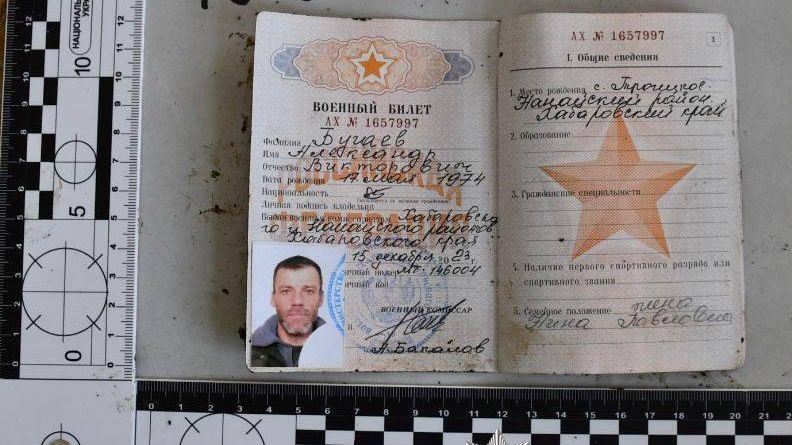 НАЦИОНАЛЬНА
УКРА
ВОЕННЫЙ БИЛЕТ
АХ № 1657997
Фамилия Бугаев
Имя Александр
Отчество Викторович
Дата рождения мая 1974
Национальность
Личная подпись владельца
Выдан военным комиссариатом Хабаровско
го и Нанайского районов
Хабаровского края
15 декабря 2023 г.
личный номер МТ-146004
ВОЕННЫЙ КОМИССАР
А Бакалов
АХ № 1657997
1
I. Общие сведения
1. Место рождения с. Троицкое
Нанайский район
Хабаровский край
2. Образование
3. Гражданские специальности
4. Наличие первого спортивного разряда или
спортивного звания
5. Семейное положение жена
Нина Павловна
10
5
0
12
11
10
9
8
7
6
5
4
3
2
1
0
0 1 2 3 4 5 6 7 8 9 10 11 12 13 14 15 16 17 18 19 20 21 22